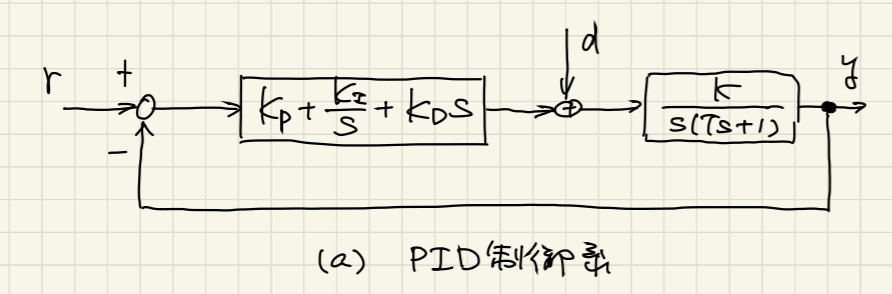 d
r + K_P + K_I/S + K_D S K/S(TS+1) y
−
(a) PID制御系